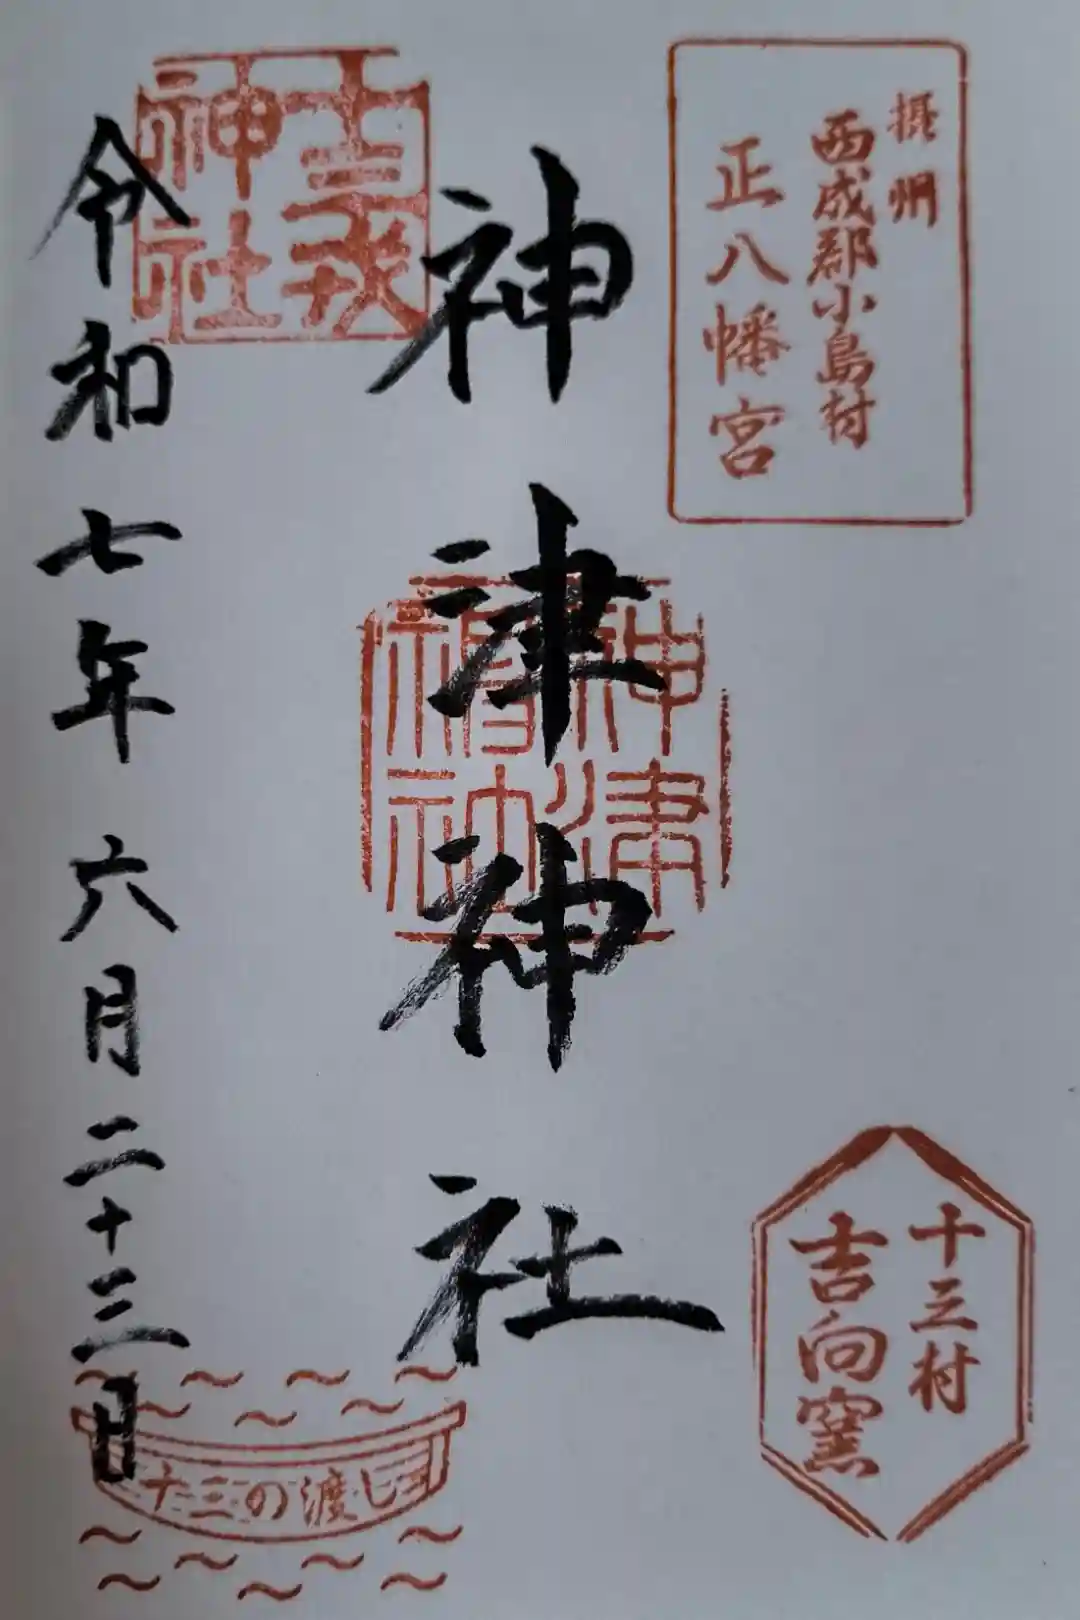 摂州
西成郡小島村
正八幡宮
神津神社
神津
神社
十三戎
神社
十三村
吉向窯
令和七年六月二十三日
十三の渡し